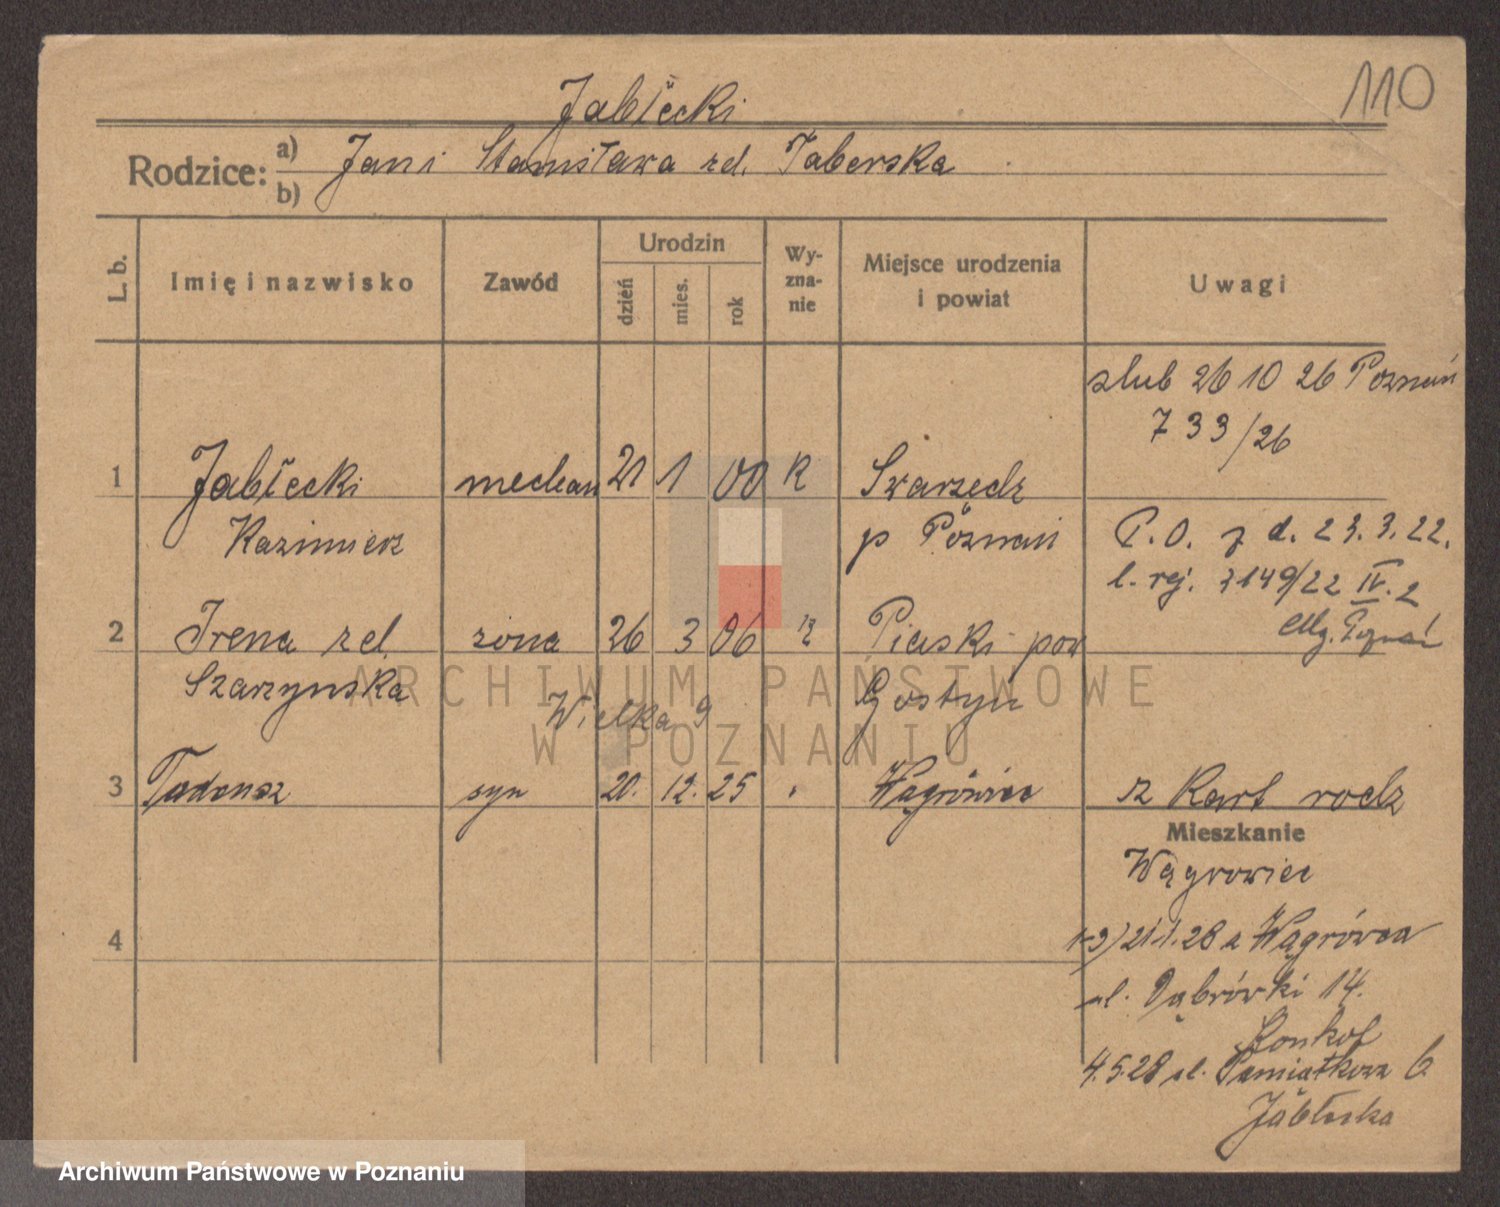 110
Jabłecki
Rodzice: a) Jan i Stanisława zd. Taberska
b)
L. b. Imię i nazwisko Zawód Urodzin dzień mies. rok Wyznanie Miejsce urodzenia i powiat Uwagi
ślub 26 10 26 Poznań
733/26
1 Jabłecki mechan 21 1 00 R Swarzędz
Kazimierz p Poznań
P.O. z d. 23.3.22.
l. rej. 3149/22 IV. 2
Mg. Poznań
2 Irena zd. żona 26 3 06 R Piaski pow
Szarzyńska Gostyń
Wielka 9
3 Tadeusz syn 20. 12. 25 " Wągrówiec z Kart rodz
Mieszkanie
Wągrowiec
1-3) 21.1.28 z Wągrówca
4
ul. Dąbrówki 14.
Konkol
4.5.28 ul. Pamiątkowa 6
Jabłecka
ARCHIWUM PAŃSTWOWE
W POZNANIU
Archiwum Państwowe w Poznaniu